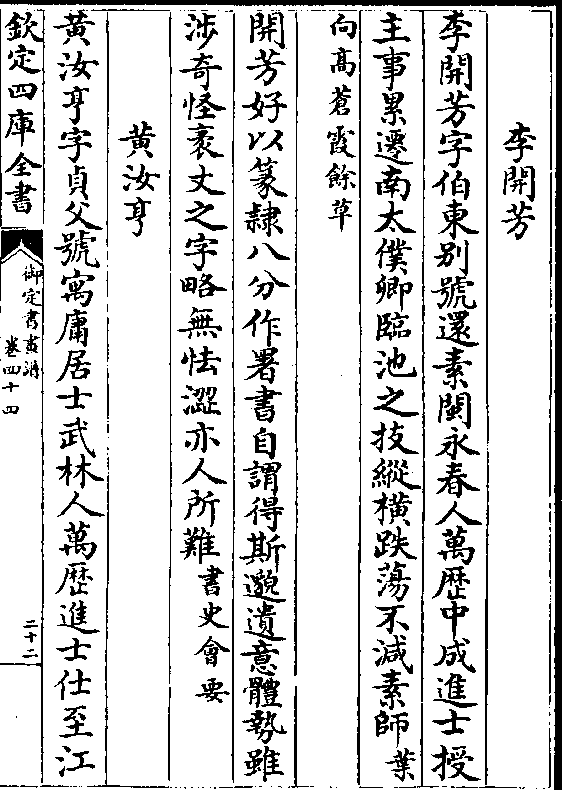 李開芳
李開芳字伯東别號還素閩永春人萬歷中成進士授
主事累遷南太僕卿臨池之技縱横跌蕩不減素師葉
向髙蒼霞餘草
開芳好以篆隸八分作署書自謂得斯邈遺意體勢雖
涉奇怪袤丈之字略無怯澀亦人所難書史會要
黄汝亨
黄汝亨字貞父號寓庸居士武林人萬歷進士仕至江
欽定四庫全書
御定書畫譜
卷四十四
二十二